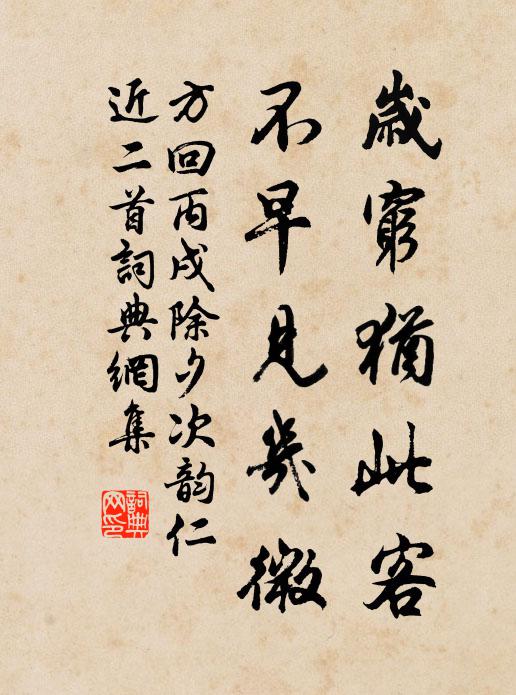 歲窮猶此客
不早見幾微
方回丙戌除夕次韵仁
近二首詞典網集
詞典
网印